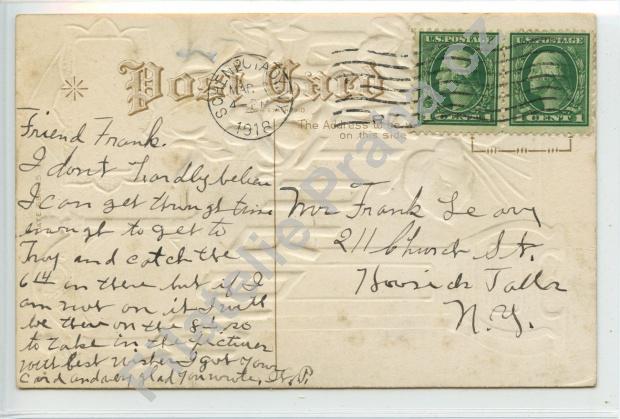 Post Card
SCHENECTADY
MAR
4 PM
N.Y.
1918
U.S. POSTAGE
U.S. POSTAGE
1 CENT 1
1 CENT 1
The Address to be
on this side
Friend Frank.
I don't hardly believe
I can get through time
enough to get to
Troy and catch the
6th on there but if I
am not on it I will
be there on the 8th so
to take in the pictures
with best wishes I got your
card and very glad you wrote,
Mr Frank Leary
211 Church St.
Hoosick Falls
N.Y.
Filatelie Praga.cz